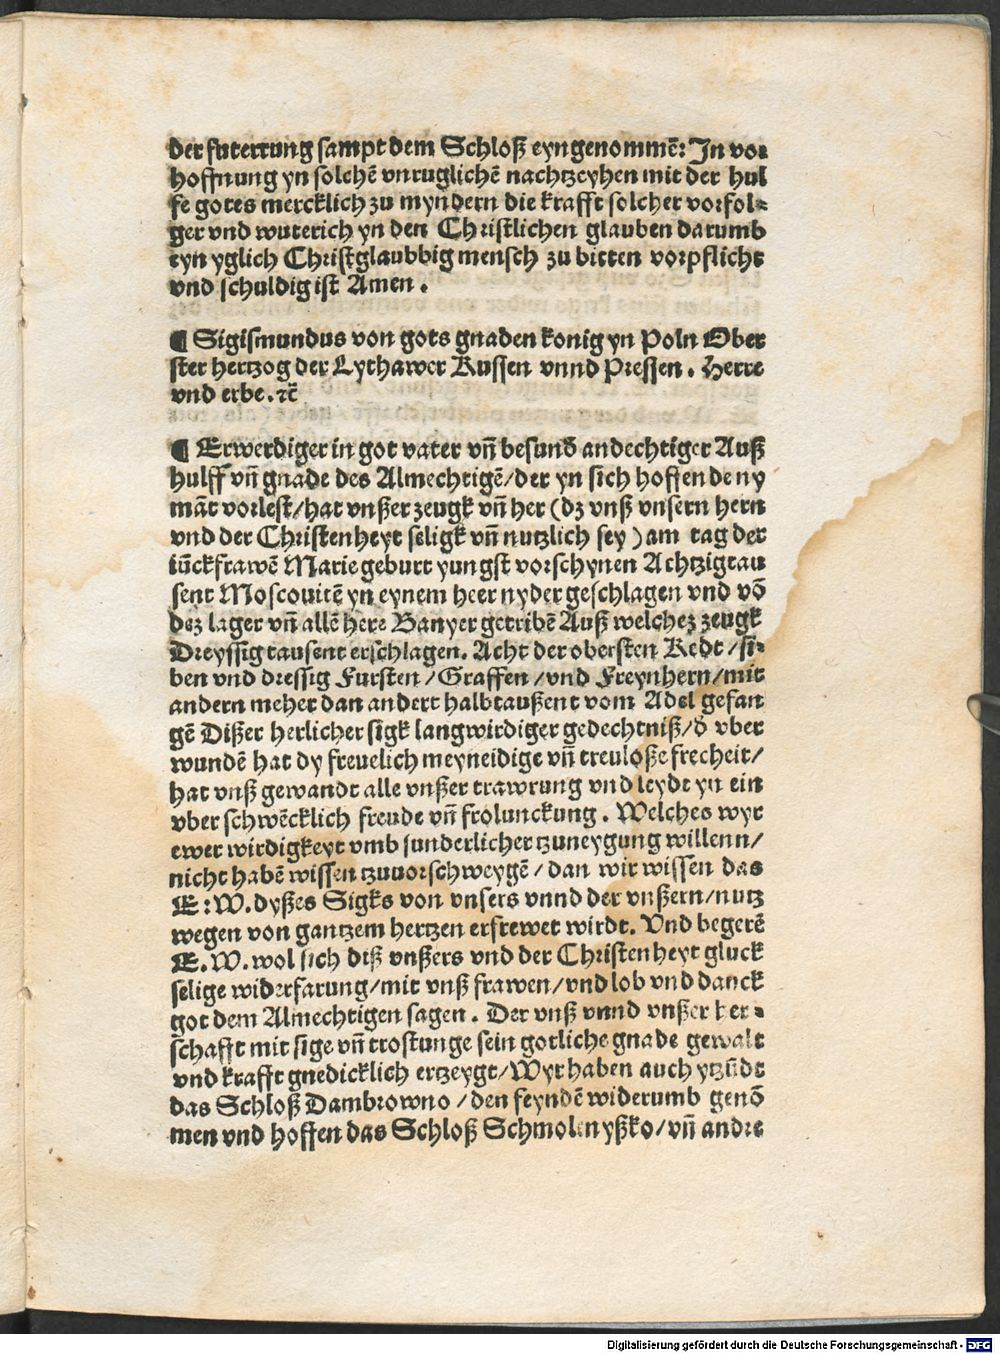 der futerrung sampt dem Schloß eyngenommē: In vor
hoffnung yn solchē vnruglichē nachtzeyhen mit der hul
fe gotes mercklich zu myndern die krafft solcher vorfol⸗
ger vnd wuterich yn den Christlichen glauben darumb
eyn yglich Christglaubbig mensch zu bitten vorpflicht
vnd schuldig ist Amen .
¶ Sigismundus von gots gnaden konig yn Poln Ober
ster hertzog der Lythawer Russen vnnd Pressen . Herre
vnd erbe. ꝛc̄
¶ Erwerdiger in got vater vn̄ besund̄ andechtiger Auß
hulff vn̄ gnade des Almechtigē/der yn sich hoffen de ny
māt vorlest/hat vnßer zeugk vn̄ her (dz vnß vnsern hern
vnd der Christenheyt seligk vn̄ nutzlich sey ) am tag der
iūckfrawē Marie geburt yungst vorschynen Achtzigtau
sent Moscouitē yn eynem heer nyder geschlagen vnd vō
dez lager vn̄ allē here Banyer getribē Auß welchez zeugk
Dreyssig tausent erschlagen. Acht der obersten Redt /si⸗
ben vnd dressig Fursten /Graffen /vnd Freynhern/mit
andern meher dan andert halbtaußent vom Adel gefan
gē Dißer herlicher sigk langwirdiger gedechtniß/d̄ vber
wundē hat dy freuelich meyneidige vn̄ treuloße frecheit/
hat vnß gewandt alle vnßer trawrung vnd leydt yn ein
vber schwēcklich freude vn̄ frolunckung . Welches wyr
ewer wirdigkeyt vmb sunderlicher tzuneygung willenn/
nicht habē wissen tzuuorschweygē / dan wir wissen das
E: W. dyßes Sigks von vnsers vnnd der vnßern/nutz
wegen von gantzem hertzen erfrewet wirdt. Vnd begerē
E. W. wol sich diß vnßers vnd der Christenheyt gluck
selige widerfarung/mit vnß frawen/vnd lob vnd danck
got dem Almechtigen sagen . Der vnß vnnd vnßer her ⸗
schafft mit sige vn̄ trostunge sein gotliche gnade gewalt
vnd krafft gnedicklich ertzeygt/Wyr haben auch ytzūdt
das Schloß Dambrowno /den feyndē widerumb genō
men vnd hoffen das Schloß Schmolenyßko/vn̄ andre
Digitalisierung gefördert durch die Deutsche Forschungsgemeinschaft - DFG